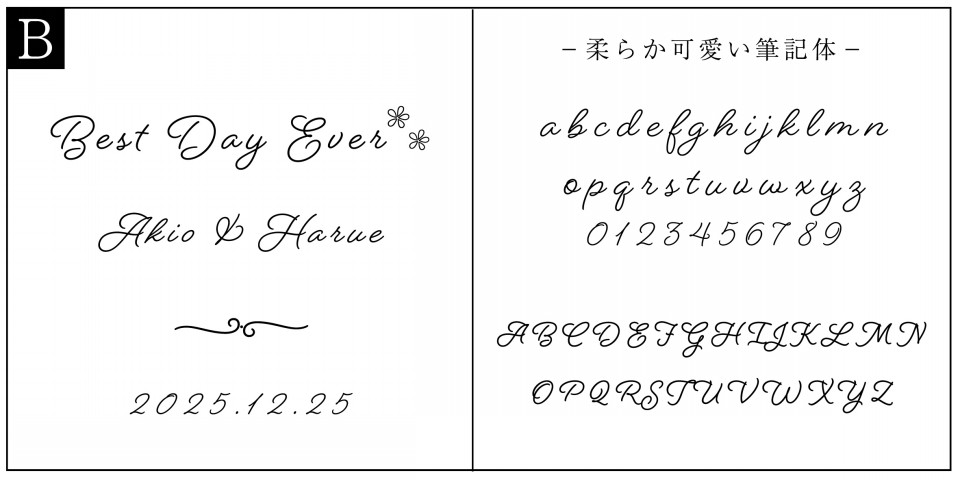 B
Best Day Ever
Akio & Harue
2025.12.25
－柔らか可愛い筆記体－
abcdefghijklmn
opqrstuvwxyz
0123456789
ABCDEFGHIJKLMN
OPQRSTUVWXYZ